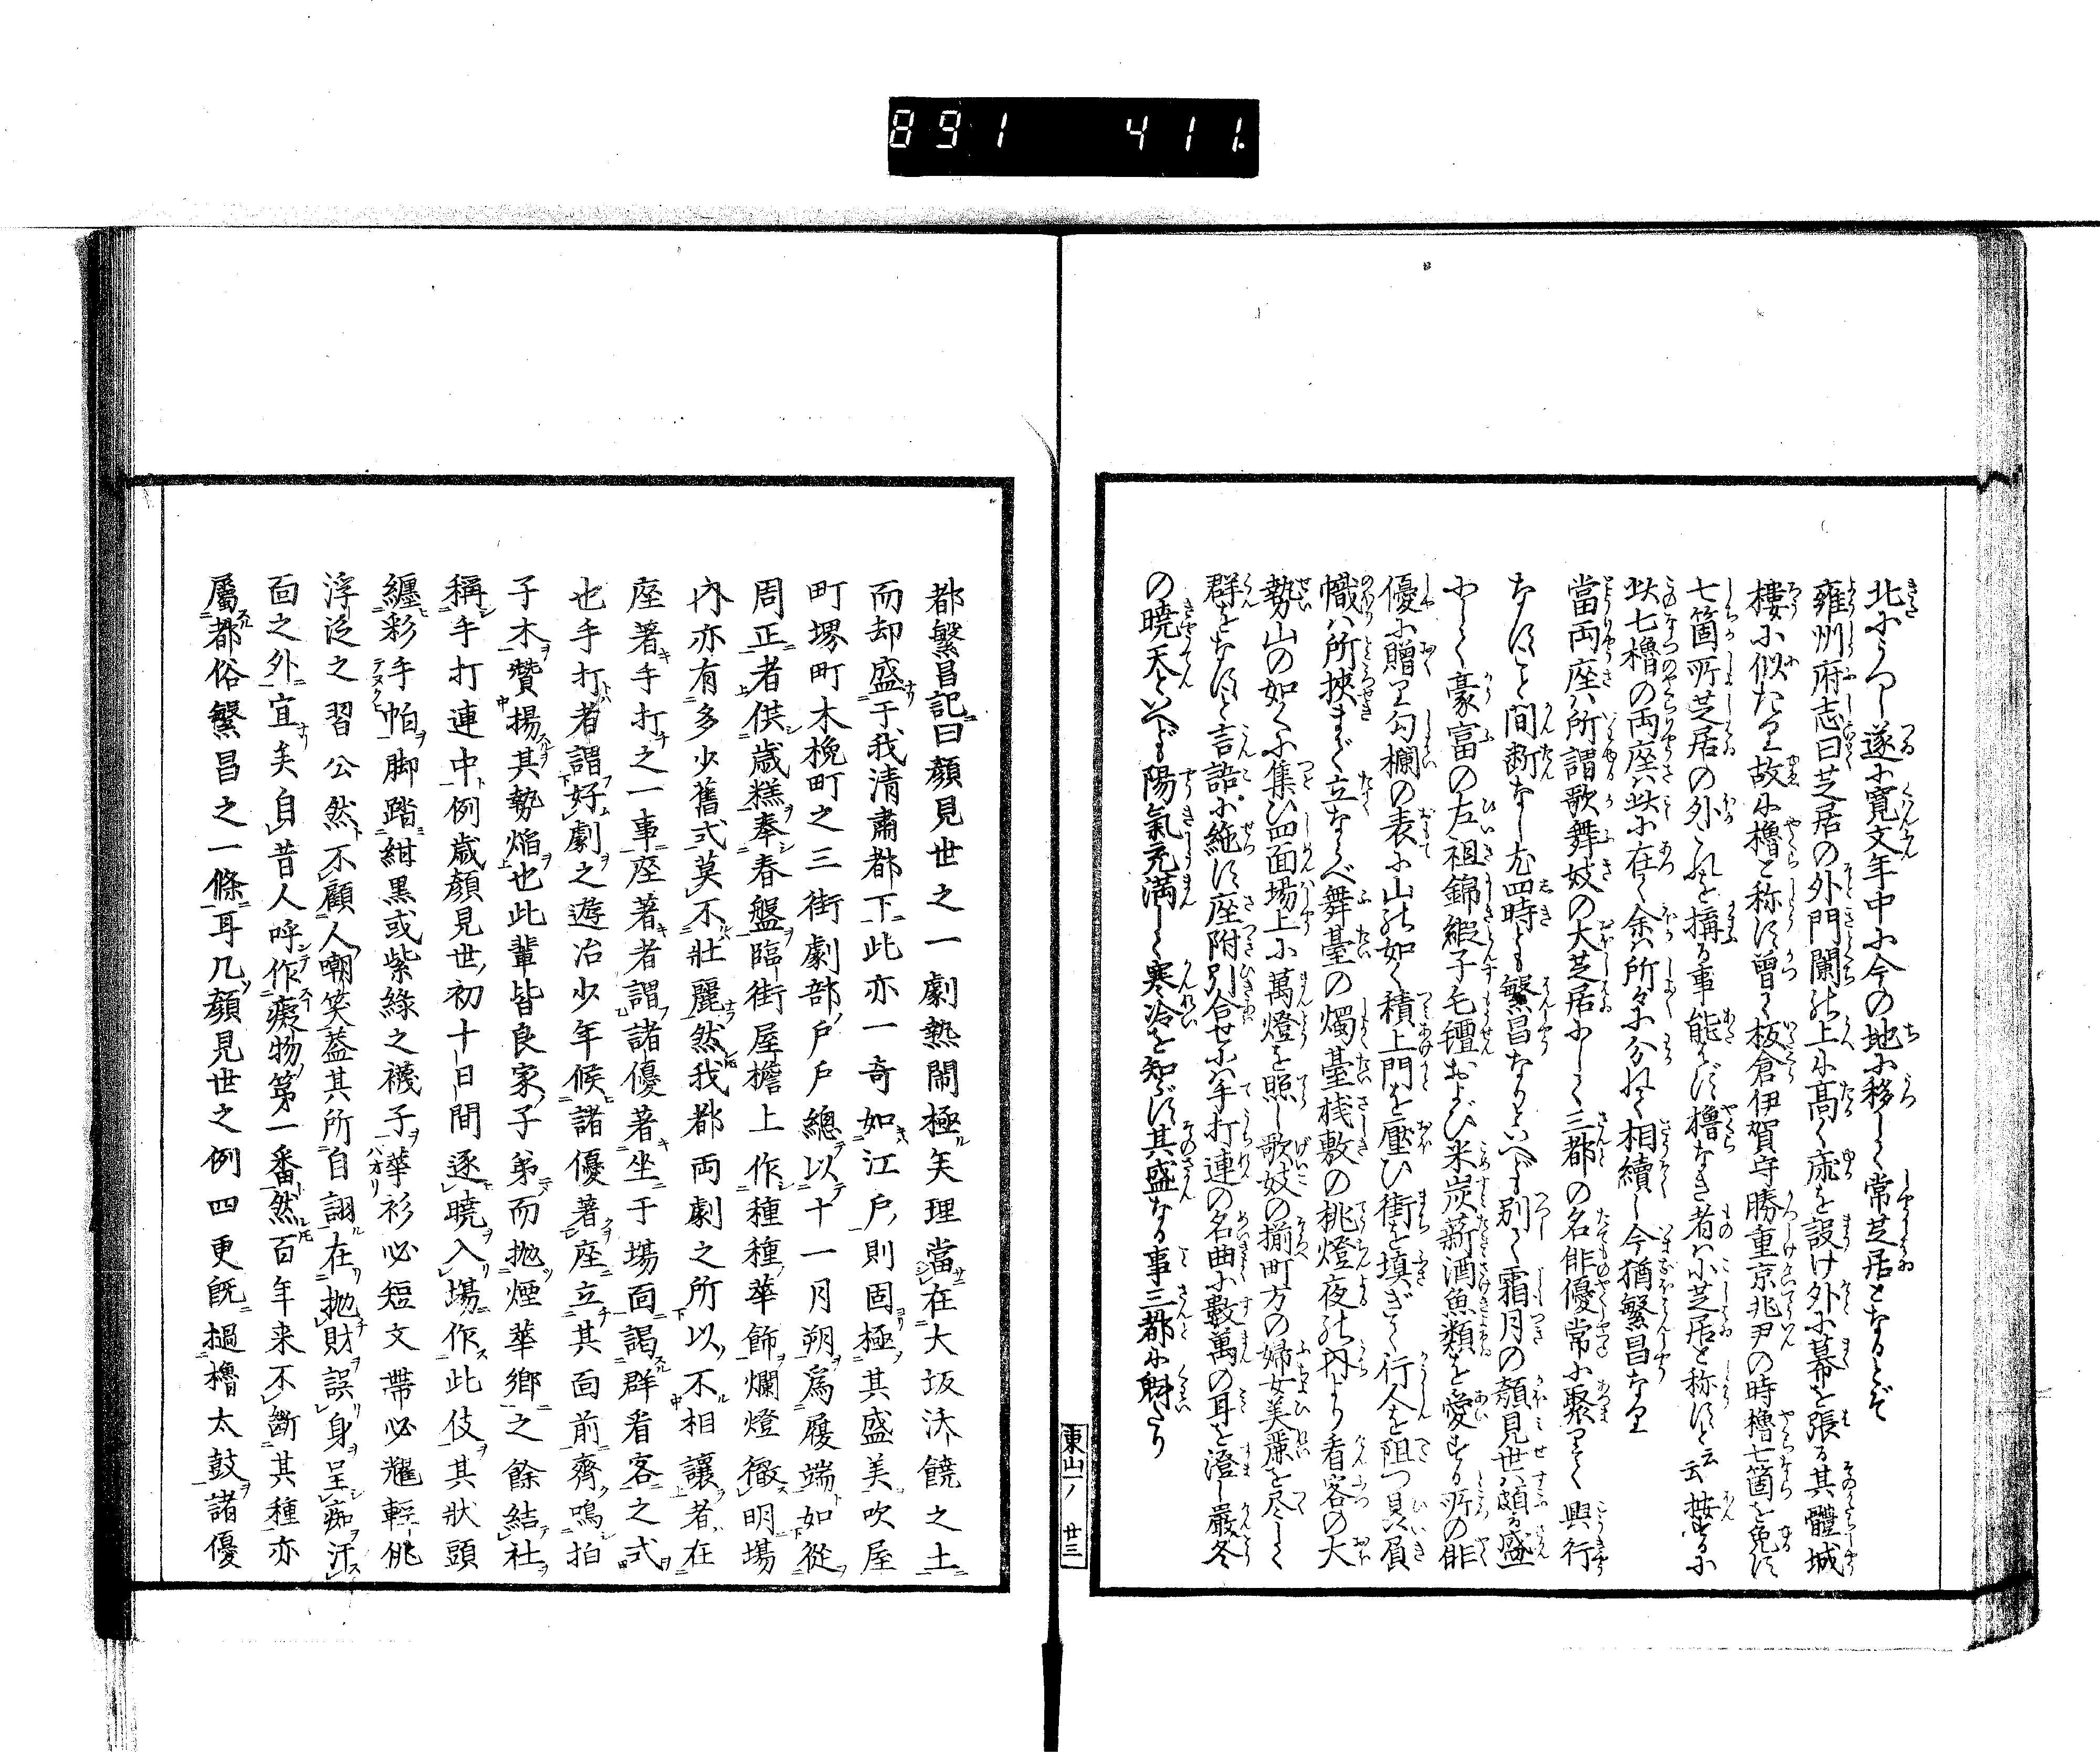 891 411.
北にうつし遂に寛文年中に今の地に移して常芝居となるとぞ
雍州府志曰芝居の外門闌の上に高く床を設け外に幕を張る其體城
樓に似たり故に櫓と称す曽て板倉伊賀守勝重京兆尹の時櫓七箇を免す
七箇所芝居の外これを搆る事能はず櫓なき者は小芝居と称すと云云按ずるに
此七櫓の両座は此に在て余は所々に分れて相續し今猶繁昌なり
當両座は所謂歌舞妓の大芝居にして三都の名俳優常に聚りて興行
なすこと間断なし尤四時とも繁昌なりといへども別て霜月の顔見世は頗る盛
にして豪富の左袒錦緞子毛氈および米炭薪酒魚類を愛する所の俳
優に贈り勾欄の表に山の如く積上門を壓ひ街を填ぎて行人を阻つ贔屓
幟は所挾まで立ならべ舞臺の燭臺桟敷の挑燈夜の内より看客の大
勢山の如くに集ひ四面場上に萬燈を照し歌妓の揃町方の婦女美麗を尽して
群をなすこと言語に絶す座附引合せには手打連の名曲に數萬の耳を澄し嚴冬
の曉天といへども陽氣充満して寒冷を知らず其盛なる事三都に魁たり
東山ノ 廿三
都繁昌記曰顔見世之一劇熱閙極矣理當在大坂沃饒之土
而却盛于我清肅都下此亦一奇如江戸則固極其盛美吹屋
町堺町木挽町之三街劇部戸戸總以十一月朔爲履端如從
周正者供歳糕奉春盤臨街屋檐上作種種華飾爛燈徹明場
内亦有多少舊式莫不壮麗然我都両劇之所以不相讓者在
座著手打之一事座著者謂諸優著坐于場面謁群看客之式
也手打者謂好劇之遊冶少年候諸優著座立其面前齊鳴拍
子木贊揚其勢焔也此輩皆良家子弟而抛煙華鄕之餘結社
稱手打連中例歳顔見世初十日間逐曉入場作此伎其狀頭
纏彩手帕脚踏紺黒或紫綠之襪子華衫必短文帶必尨輕佻
浮泛之習公然不顧人嘲笑蓋其所自詡在抛財誤身呈痴汗
面之外宜矣自昔人呼作癡物第一番然百年来不斷其種亦
屬都俗繁昌之一條耳凡顔見世之例四更既撾櫓太鼓諸優